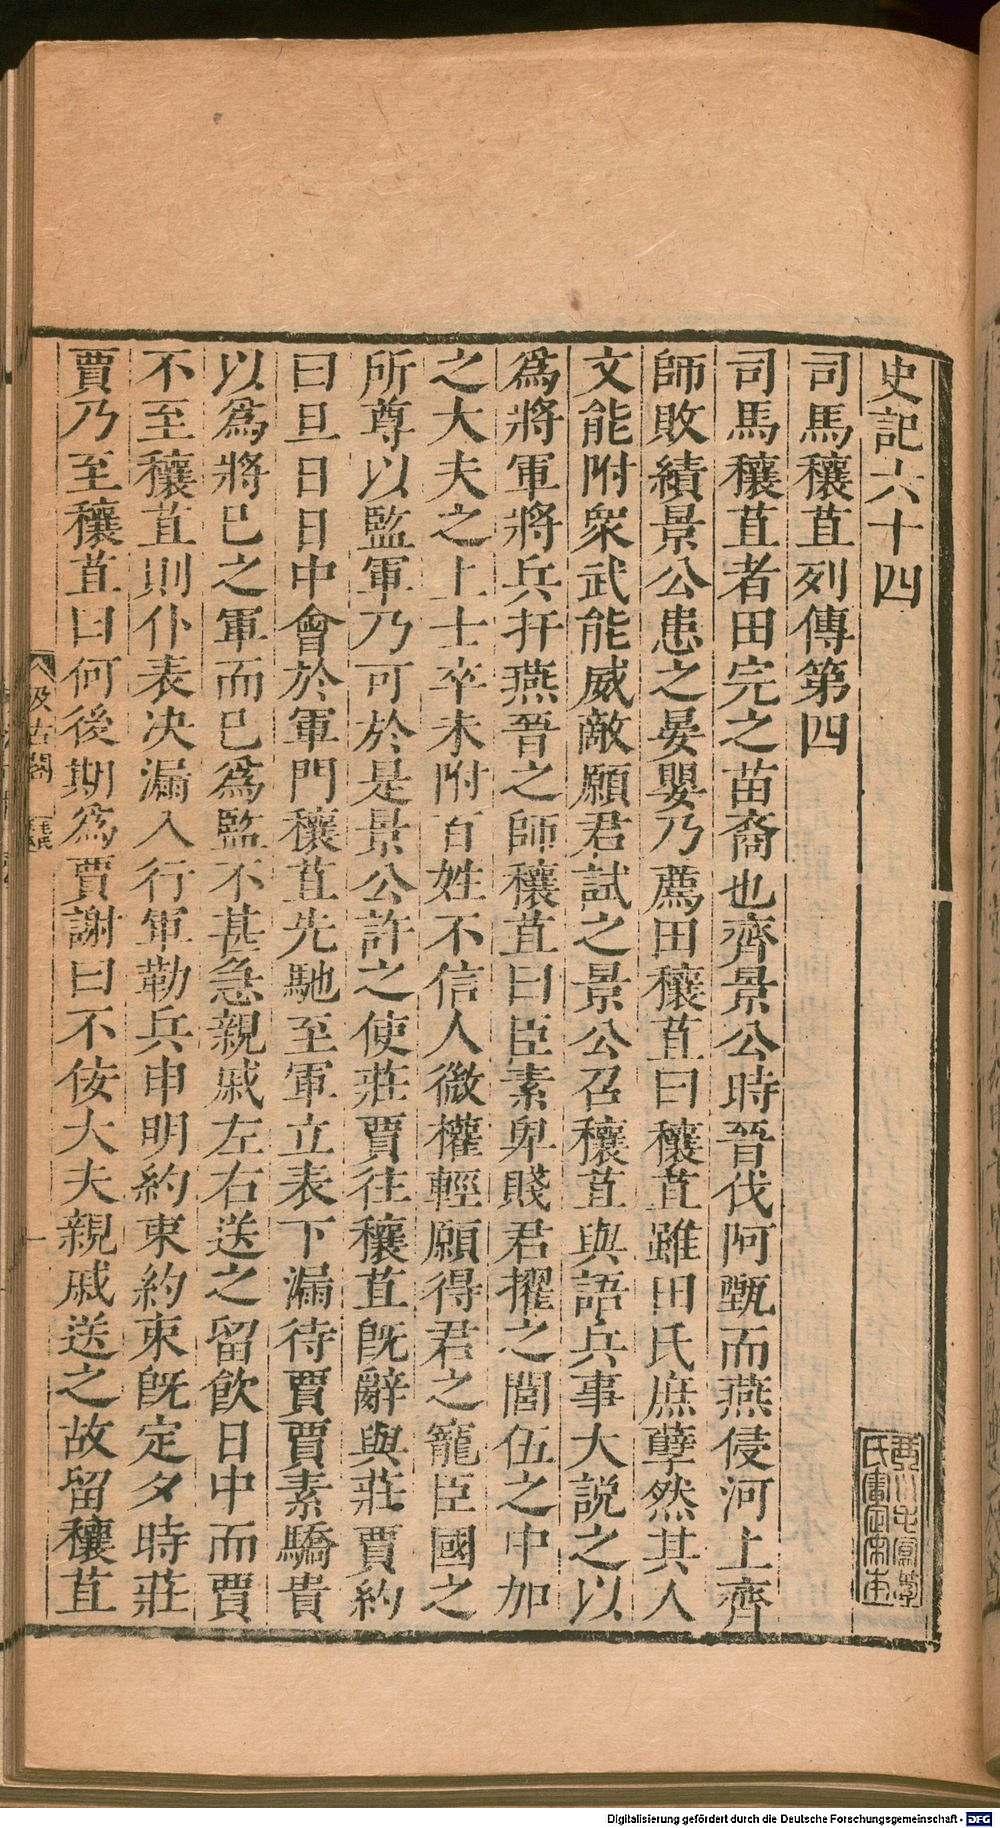 史記六十四
司馬穰苴列傳第四
司馬穰苴者田完之苗裔也齊景公時晉伐阿甄而燕侵河上齊
師敗績景公患之晏嬰乃薦田穰苴曰穰苴雖田氏庶孽然其人
文能附衆武能威敵願君試之景公召穰苴與語兵事大説之以
爲將軍將兵扞燕晉之師穰苴曰臣素卑賤君擢之閭伍之中加
之大夫之上士卒未附百姓不信人微權輕願得君之寵臣國之
所尊以監軍乃可於是景公許之使莊賈往穰苴旣辭與莊賈約
曰旦日日中會於軍門穰苴先馳至軍立表下漏待賈賈素驕貴
以爲將已之軍而已爲監不甚急親戚左右送之留飮日中而賈
不至穰苴則仆表决漏入行軍勒兵申明約束約束旣定夕時莊
賈乃至穰苴曰何後期爲賈謝曰不佞大夫親戚送之故留穰苴
汲古閣
Digitalisierung gefördert durch die Deutsche Forschungsgemeinschaft - DFG